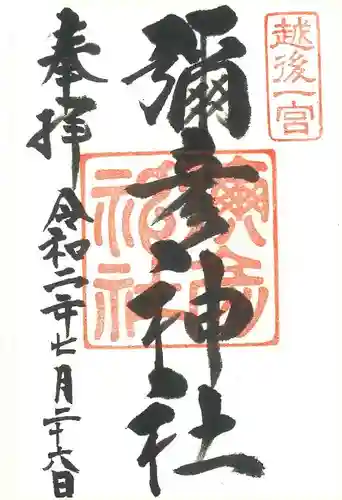 越後一宮
彌彦神社
奉拝
令和二年七月二十六日